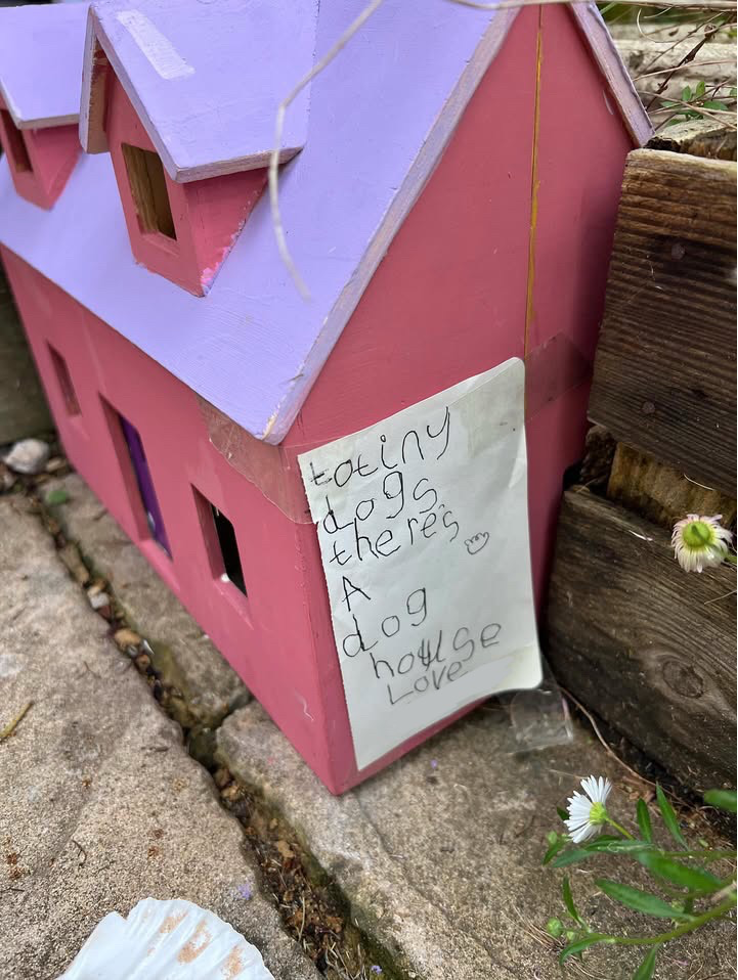 totiny
dogs
there's
A
dog
house
Love